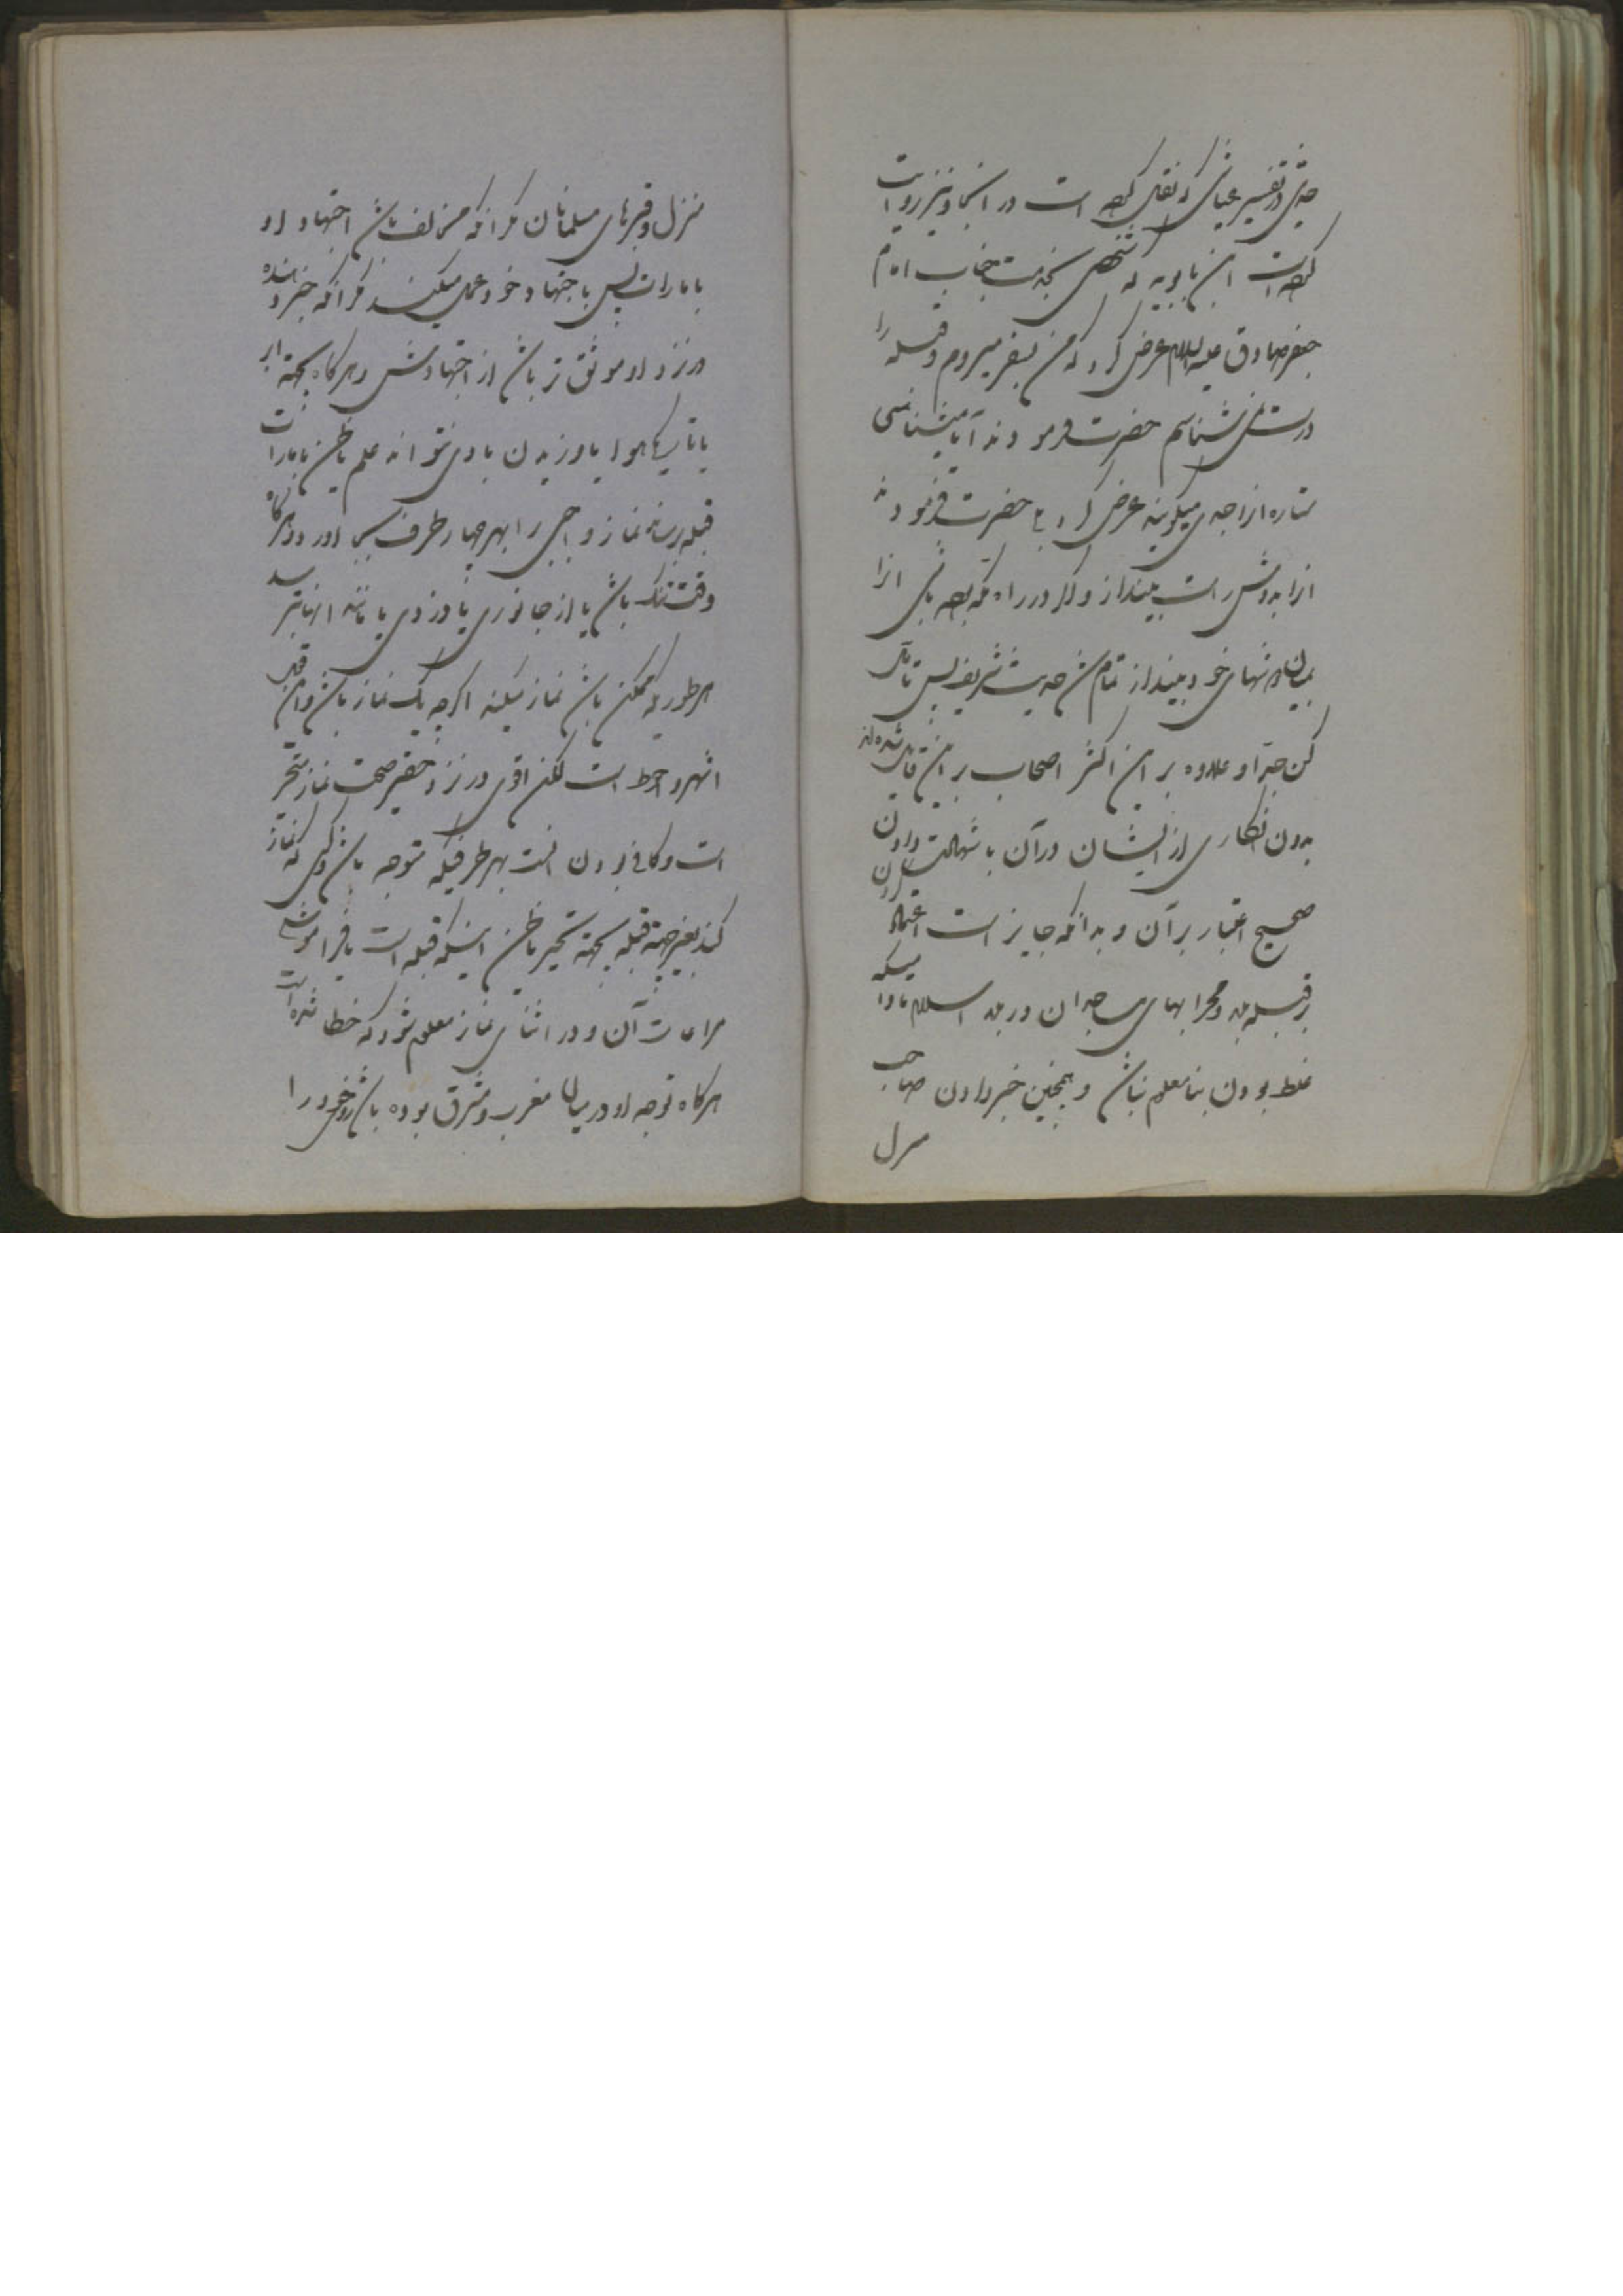 حدیثی در تفسیر عیاشی که نقل کرده است در اینجا و نیز روایت
کرده است ابن بابویه که شخصی بخدمت جناب امام
جعفر صادق علیه السلام عرض کرد که من بسفر میروم و قبله را
درست نمی شناسم حضرت فرمودند آیا میشناسی
ستاره ازا جدی میگویند عرض کرد بلی حضرت فرمودند
انرا بدوش راست بینداز و اگر در راه مکه بوده باشی انرا
بمیان دوشهای خود بینداز تمام شد حدیث شریف پس تأمل
کن جدا و علاوه بر این اکثر اصحاب بر این قائل شده‌اند
بدون انکاری از ایشان در آن با شهادت دادن
صحیح اعتبار بر آن و بدانکه جایز است اعتماد
بر قبله بلد و محرابهای مساجد ان در بلد اسلام مادامیکه
غلط بودن بنا معلوم نباشد و همچنین خبر دادن صاحب
منزل
منزل و قبرهای مسلمانان مگر انکه مخالف باشد اجتهاد او
با امارات پس باجتهاد خود عمل میکند مگر انکه خبر دهنده
در نزد او موثق تر باشد از اجتهادش و هر گاه بجهة ابر
یا تاریکی هوا یا وزیدن باد نتواند علم یا ظن بامارات
قبله برساند نماز واجبی را بهر چهار طرف بجا اورد و هرگاه
وقت تنگ باشد یا از جانوری یا دزدی یا مانند انها بترسد
هر طوریکه ممکن باشد نماز میکند اگر چه یک نماز باشد و این قدر
اشهر و احوط است لکن اقوی در نزد حقیر صحت نماز متحیر
است و کافی بودن انست بهر طرفیکه متوجه باشد و کسی که نماز
کند بغیر جهة قبله بجهة تحیر یا ظن اینکه قبله است یا فراموشی
مراعات آن و در اثنای نماز معلوم شود که خطا شده است
هرگاه توجه او در میان مغرب و مشرق بوده باشد رو خود را